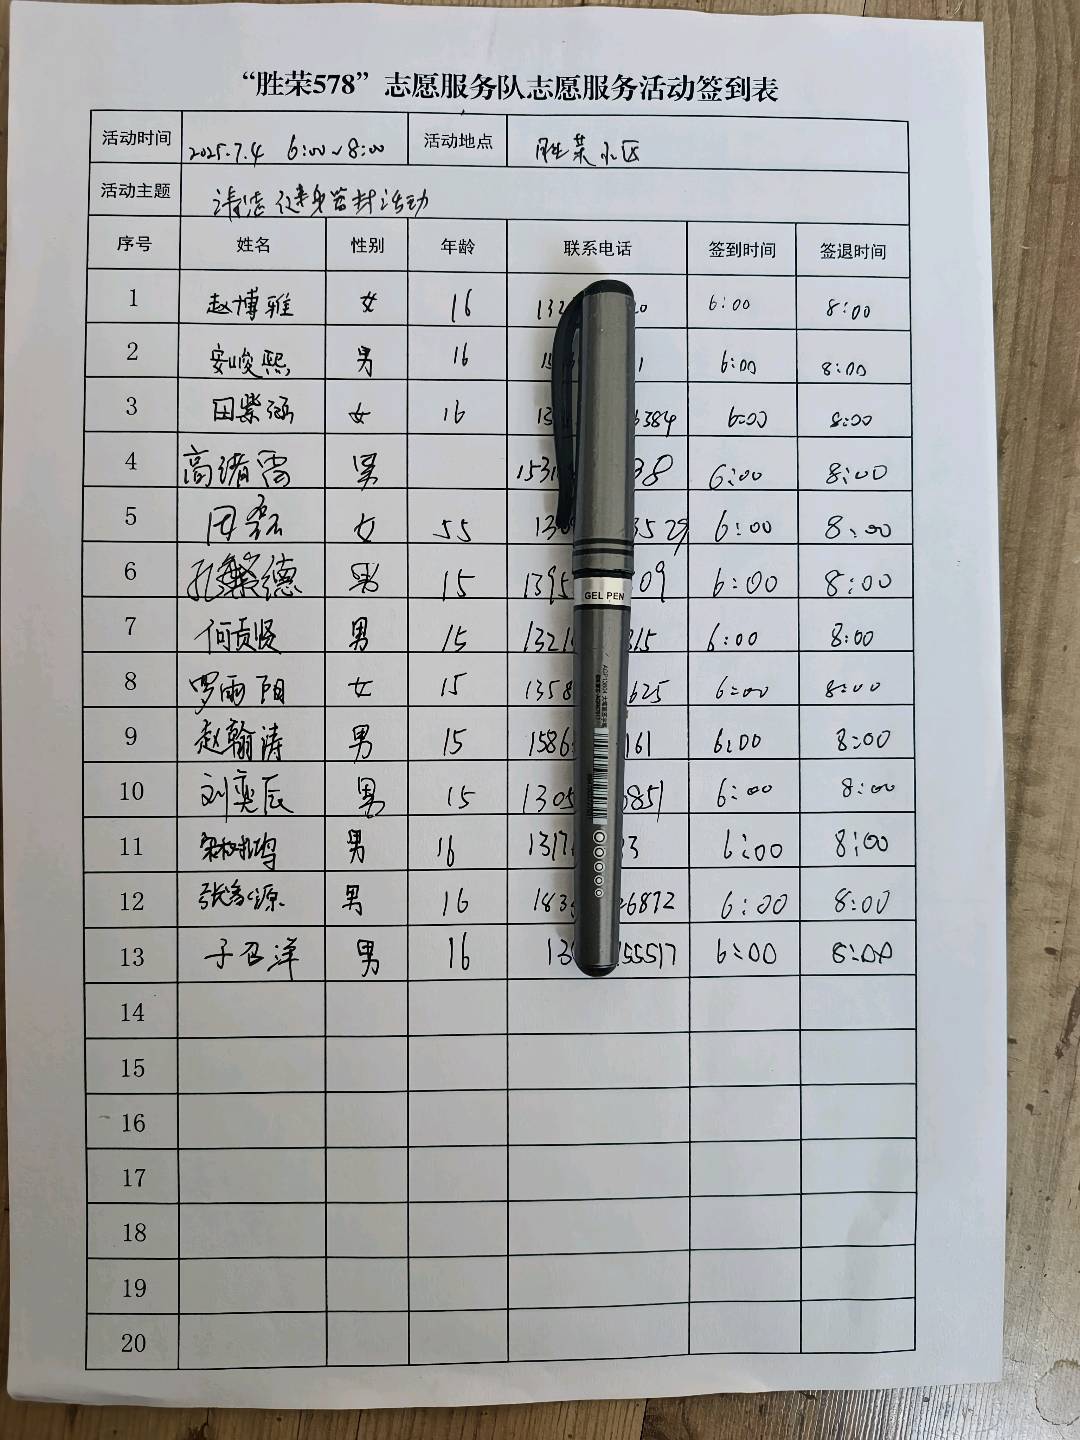 “胜荣578”志愿服务队志愿服务活动签到表
活动时间 2025.7.4 6:00~8:00 活动地点 胜荣小区
活动主题 清洁健身器材活动
序号 姓名 性别 年龄 联系电话 签到时间 签退时间
1 赵博雅 女 16 132 0 6:00 8:00
2 安峻熙 男 16 15 1 6:00 8:00
3 田紫涵 女 16 13 6384 6:00 8:00
4 高绪 男 1531 38 6:00 8:00
5 田磊 女 55 130 3529 6:00 8:00
6 孔繁德 男 15 1395 09 6:00 8:00
7 何贡贤 男 15 1321 315 6:00 8:00
8 罗雨阳 女 15 1358 625 6:00 8:00
9 赵翰涛 男 15 1586 161 6:00 8:00
10 刘奕辰 男 15 1305 6851 6:00 8:00
11 男 16 1317 33 6:00 8:00
12 张 源 男 16 183 26872 6:00 8:00
13 于召洋 男 16 13 155517 6:00 8:00
14
15
16
17
18
19
20
GEL PEN